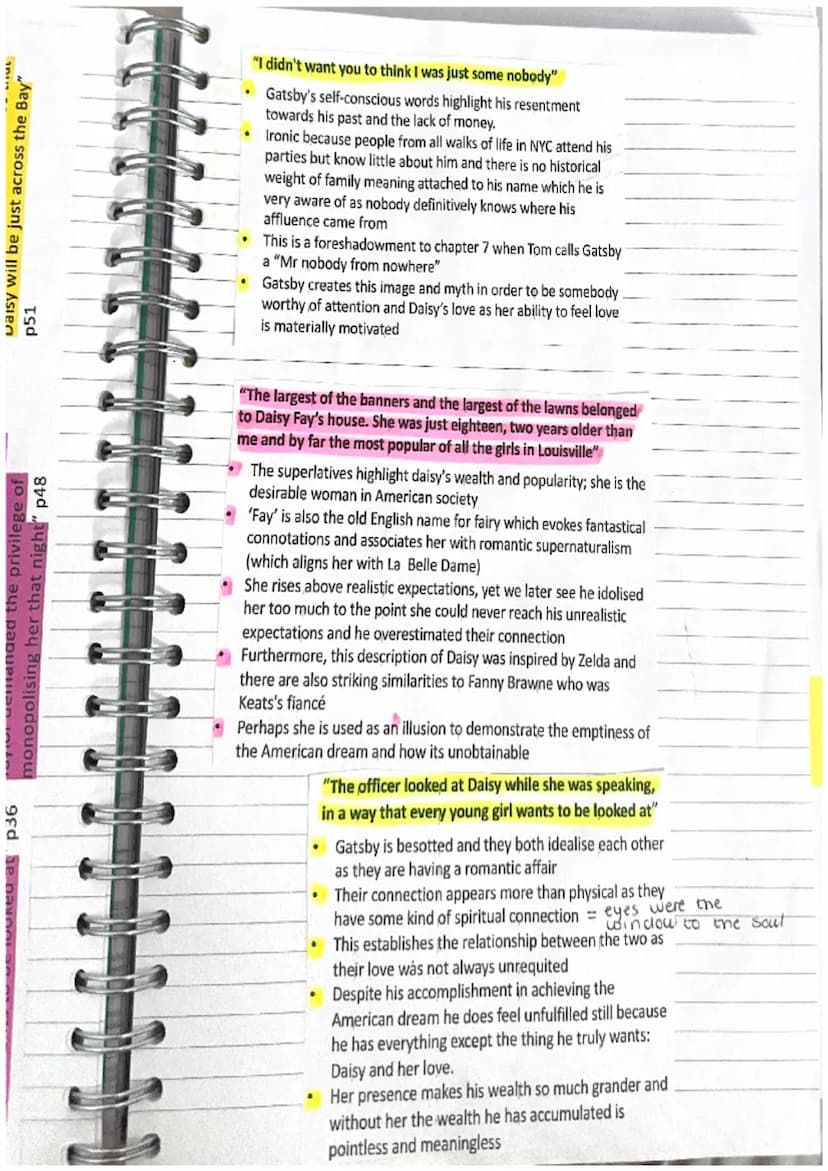 "I didn't want you to think I was just some nobody"
• Gatsby's self-conscious words highlight his resentment
towards his past and the lack of money.
• Ironic because people from all walks of life in NYC attend his
parties but know little about him and there is no historical
weight of family meaning attached to his name which he is
very aware of as nobody definitively knows where his
affluence came from
• This is a foreshadowment to chapter 7 when Tom calls Gatsby
a "Mr nobody from nowhere"
• Gatsby creates this image and myth in order to be somebody
worthy of attention and Daisy's love as her ability to feel love
is materially motivated
"The largest of the banners and the largest of the lawns belonged
to Daisy Fay's house. She was just eighteen, two years older than
me and by far the most popular of all the girls in Louisville"
• The superlatives highlight daisy's wealth and popularity; she is the
desirable woman in American society
• 'Fay' is also the old English name for fairy which evokes fantastical
connotations and associates her with romantic supernaturalism
(which aligns her with La Belle Dame)
• She rises above realistic expectations, yet we later see he idolised
her too much to the point she could never reach his unrealistic
expectations and he overestimated their connection
• Furthermore, this description of Daisy was inspired by Zelda and
there are also striking similarities to Fanny Brawne who was
Keats's fiancé
• Perhaps she is used as an illusion to demonstrate the emptiness of
the American dream and how its unobtainable
"The officer looked at Daisy while she was speaking,
in a way that every young girl wants to be looked at"
• Gatsby is besotted and they both idealise each other
as they are having a romantic affair
• Their connection appears more than physical as they
have some kind of spiritual connection = eyes were the
window to the soul
• This establishes the relationship between the two as
their love was not always unrequited
• Despite his accomplishment in achieving the
American dream he does feel unfulfilled still because
he has everything except the thing he truly wants:
Daisy and her love.
• Her presence makes his wealth so much grander and
without her the wealth he has accumulated is
pointless and meaningless
Daisy will be just across the Bay"
p51
demanded the privilege of
monopolising her that night" p48
to be looked at
p36